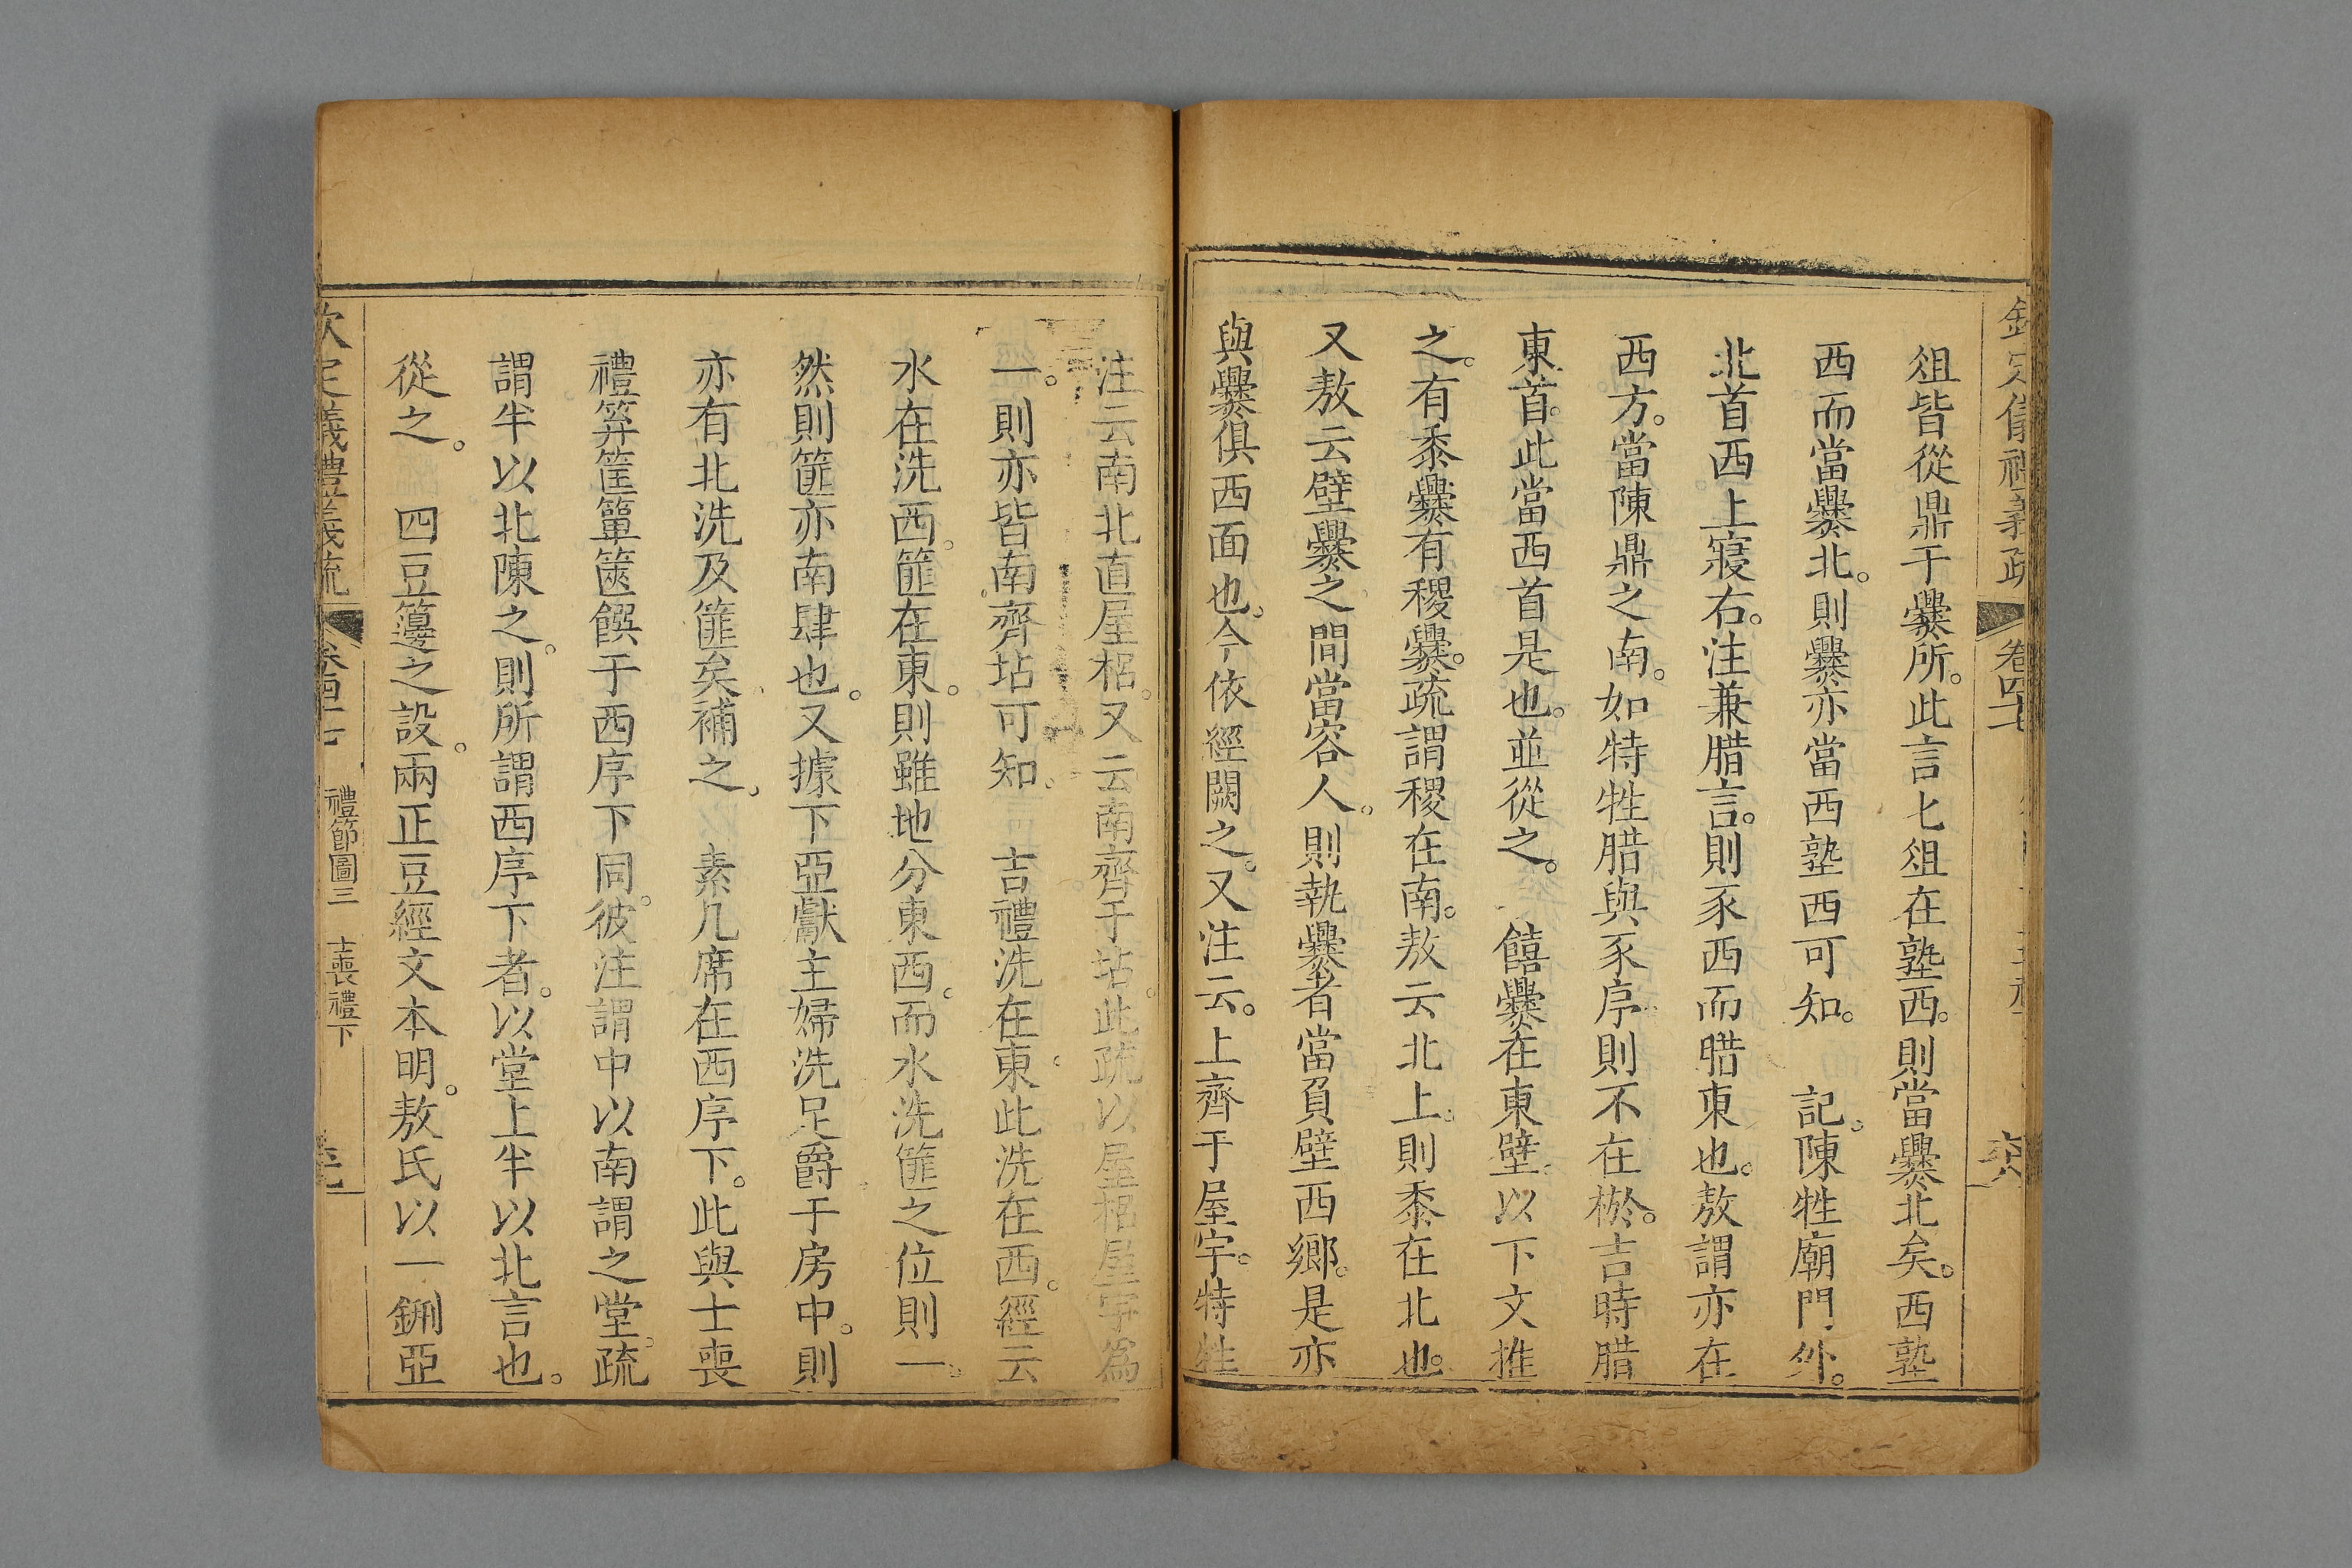 欽定儀禮義疏 卷四七
俎皆從鼎于爨所。此言匕俎在塾西。則當爨北矣。西塾
西而當爨北。則爨亦當西塾西可知。 記。陳牲廟門外。
北首西上寢右。注兼腊言。則豕西而腊東也。敖謂亦在
西方。當陳鼎之南。如特牲腊與豕序則不在棜。吉時腊
東首。此當西首是也。並從之。 饎爨在東壁。以下文推
之。有黍爨有稷爨。疏謂稷在南。敖云北上。則黍在北也。
又敖云壁爨之間當容人。則執爨者當負壁西鄉。是亦
與爨俱西面也。今依經闕之。又注云。上齊于屋宇。特牲
注云南北直屋梠。又云南齊于坫。此疏以屋梠屋宇為
一。則亦皆南齊坫可知。 吉禮洗在東。此洗在西。經云
水在洗西。篚在東。則雖地分東西。而水洗篚之位則一。
然則篚亦南肆也。又據下亞獻主婦洗足爵于房中。則
亦有北洗及篚矣補之。 素几席在西序下。此與士喪
禮笲筐簞篋饌于西序下同。彼注謂中以南謂之堂。疏
謂半以北陳之。則所謂西序下者。以堂上半以北言也。
從之。 四豆籩之設。兩正豆經文本明。敖氏以一鉶亞
欽定儀禮義疏 禮節圖三 士喪禮下